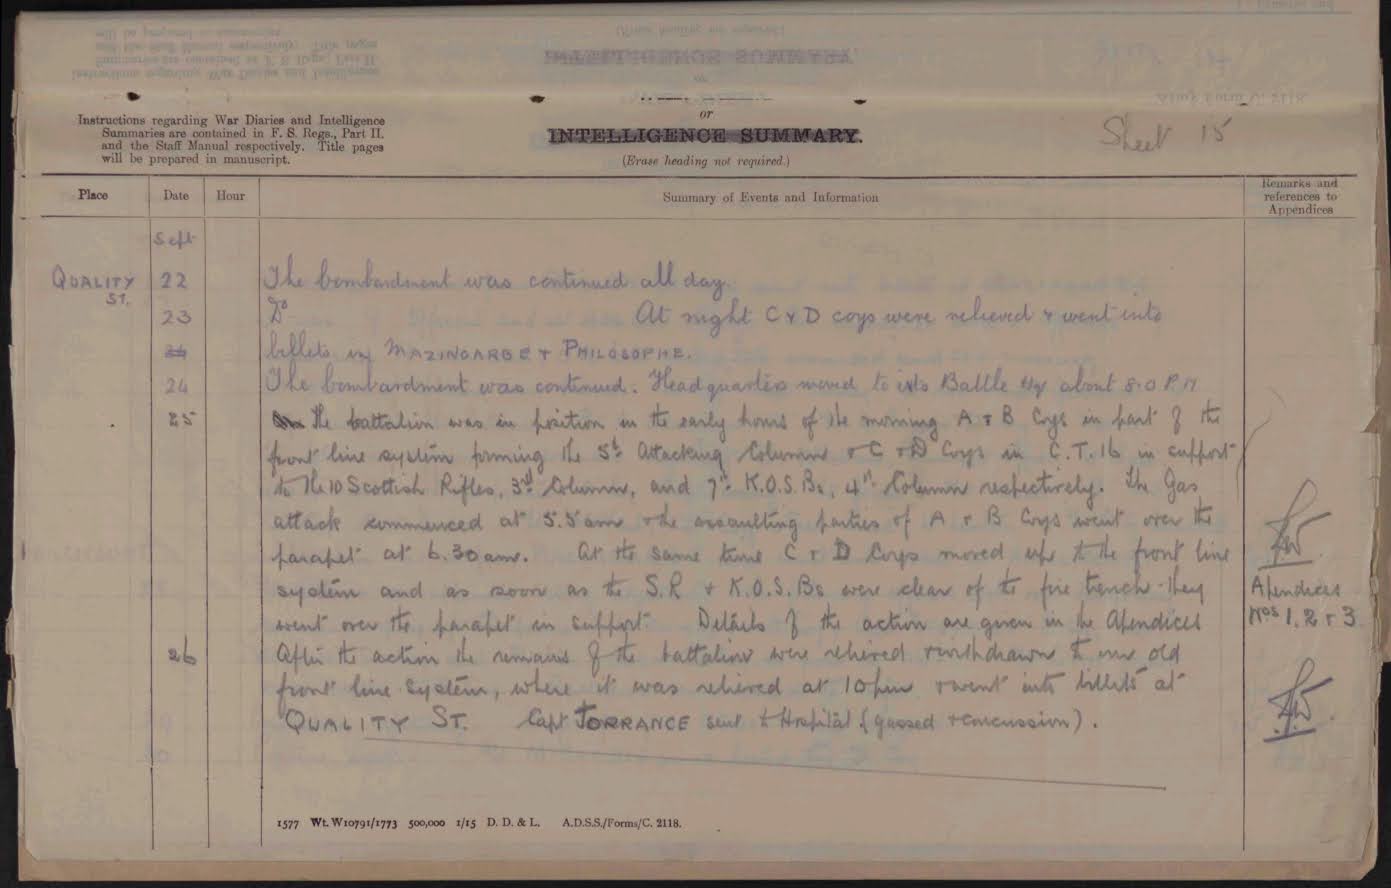 Instructions regarding War Diaries and Intelligence
Summaries are contained in F. S. Regs., Part II.
and the Staff Manual respectively. Title pages
will be prepared in manuscript.
or
INTELLIGENCE SUMMARY.
(Erase heading not required.)
Sheet 15
Place Date Hour Summary of Events and Information Remarks and references to Appendices
Sept
QUALITY ST. 22 The bombardment was continued all day.
23 Do At night C & D coys were relieved & went into
24 billets in MAZINGARBE & PHILOSOPHE.
24 The bombardment was continued. Headquarters moved to its Battle Hq about 8.0 P.M
25 The battalion was in position in the early hours of the morning A & B Coys in part of the
front line system forming the 5th Attacking Column & C & D Coys in C.T. 16 in support
to the 10 Scottish Rifles, 3rd Column, and 7th K.O.S.Bs, 4th Column respectively. The Gas
attack commenced at 5.5 am & the assaulting parties of A & B Coys went over the
parapet at 6.30 am. At the same time C & D Coys moved up to the front line
system and as soon as the S.R & K.O.S.Bs were clear of the fire trench they
went over the parapet in support. Details of the action are given in the Apendices
Apendices
Nos 1, 2 & 3
26 After the action the remains of the battalion were relieved & withdrawn to our old
front line system, where it was relieved at 10 pm & went into billets at
QUALITY ST. Capt TORRANCE sent to Hospital (gassed & concussion).
1577 Wt. W10791/1773 500,000 1/15 D. D. & L. A.D.S.S./Forms/C. 2118.